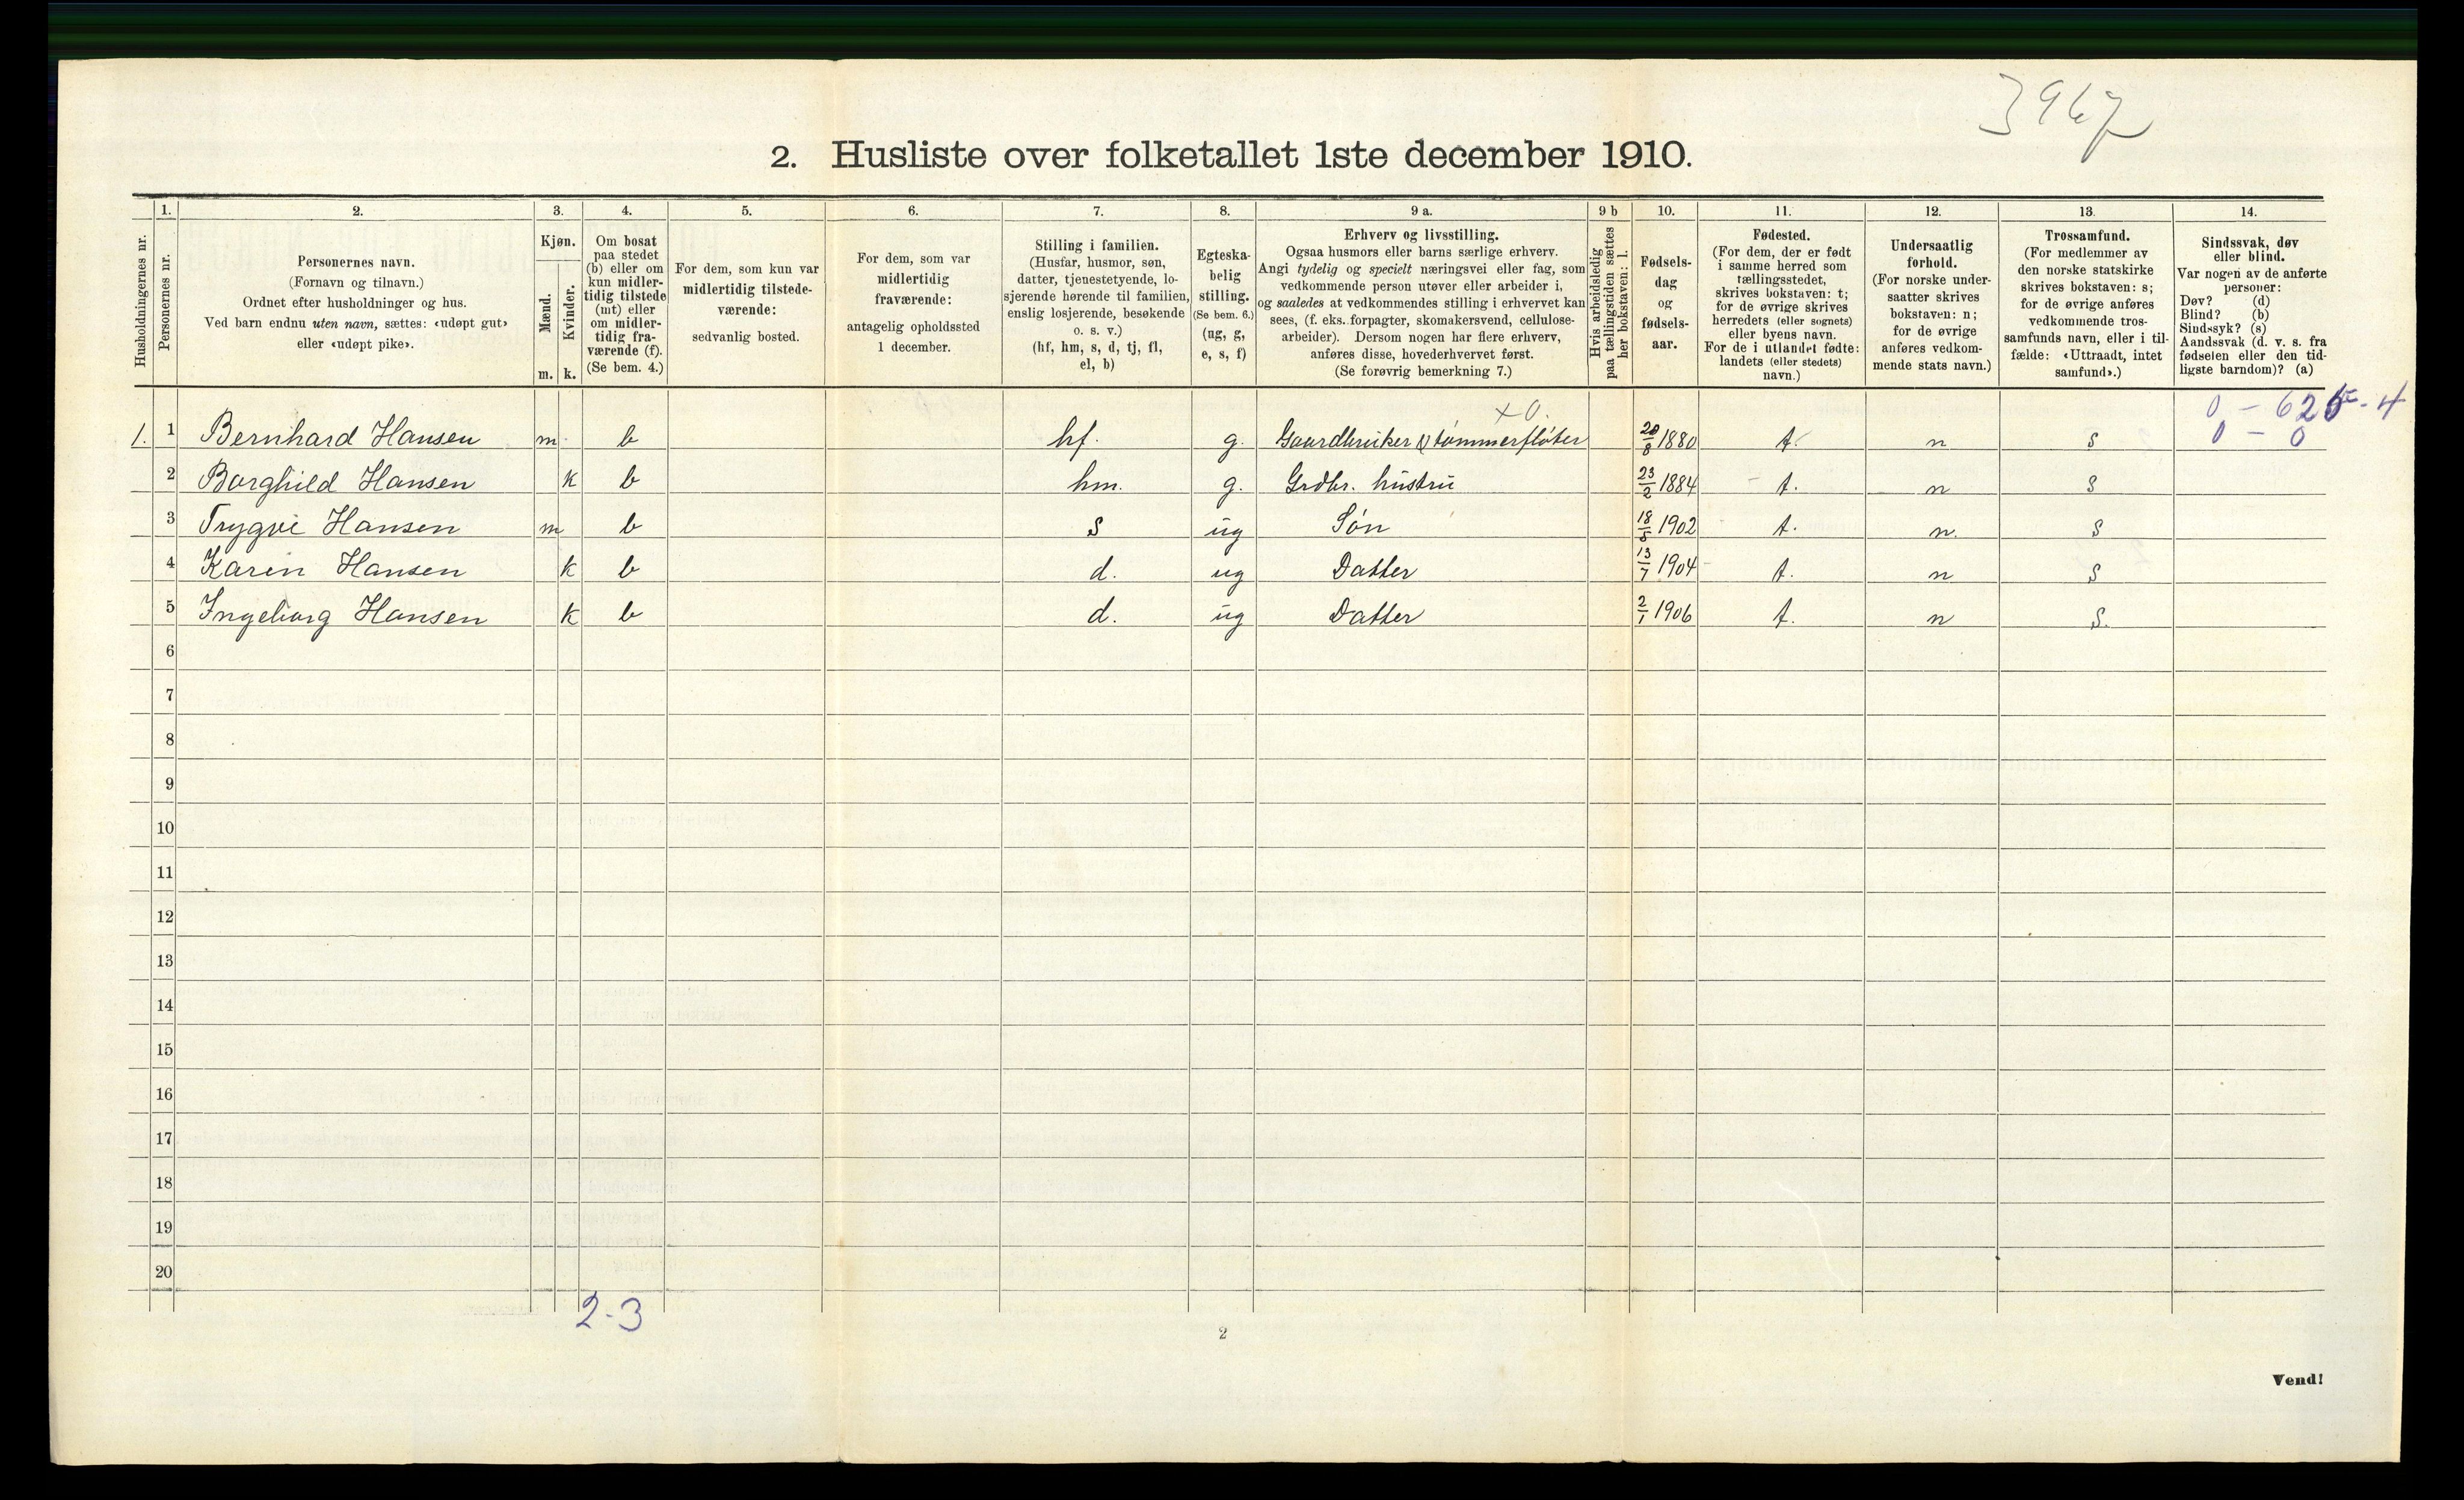 3967
2. Husliste over folketallet 1ste december 1910.
Husholdningernes nr.
1.
Personernes nr.
2.
Personernes navn.
(Fornavn og tilnavn.)
Ordnet efter husholdninger og hus.
Ved barn endnu uten navn, sættes: «udøpt gut»
eller «udøpt pike».
3.
Kjøn.
Mænd.
Kvinder.
m. k.
4.
Om bosat
paa stedet
(b) eller om
kun midler-
tidig tilstede
(mt) eller
om midler-
tidig fra-
værende (f).
(Se bem. 4.)
5.
For dem, som kun var
midlertidig tilstede-
værende:
sedvanlig bosted.
6.
For dem, som var
midlertidig
fraværende:
antagelig opholdssted
1 december.
7.
Stilling i familien.
(Husfar, husmor, søn,
datter, tjenestetyende, lo-
sjerende hørende til familien,
enslig losjerende, besøkende
o. s. v.)
(hf, hm, s, d, tj, fl,
el, b)
8.
Egteska-
belig
stilling.
(Se bem. 6.)
(ug, g,
e, s, f)
9 a.
Erhverv og livsstilling.
Ogsaa husmors eller barns særlige erhverv.
Angi tydelig og specielt næringsvei eller fag, som
vedkommende person utøver eller arbeider i,
og saaledes at vedkommendes stilling i erhvervet kan
sees, (f. eks. forpagter, skomakersvend, cellulose-
arbeider). Dersom nogen har flere erhverv,
anføres disse, hovederhvervet først.
(Se forøvrig bemerkning 7.)
9 b
Hvis arbeidsledig
paa tællingstiden sættes
her bokstaven: l.
10.
Fødsels-
dag
og
fødsels-
aar.
11.
Fødested.
(For dem, der er født
i samme herred som
tællingsstedet,
skrives bokstaven: t;
for de øvrige skrives
herredets (eller sognets)
eller byens navn.
For de i utlandet fødte:
landets (eller stedets)
navn.)
12.
Undersaatlig
forhold.
(For norske under-
saatter skrives
bokstaven: n;
for de øvrige
anføres vedkom-
mende stats navn.)
13.
Trossamfund.
(For medlemmer av
den norske statskirke
skrives bokstaven: s;
for de øvrige anføres
vedkommende tros-
samfunds navn, eller i til-
fælde: «Uttraadt, intet
samfund».)
14.
Sindssvak, døv
eller blind.
Var nogen av de anførte
personer:
Døv? (d)
Blind? (b)
Sindssyk? (s)
Aandssvak (d. v. s. fra
fødselen eller den tid-
ligste barndom)? (a)
x 0.
1. 1 Bernhard Hansen m. b hf. g. Gaardbruker & tømmerfløter 20/8 1880 t. n s 0 - 0
2 Borghild Hansen k b hm. g. Grdbr. hustru 23/2 1884 t. n s
3 Trygve Hansen m b s ug Søn 18/5 1902 t. n. s
4 Karen Hansen k b d. ug Datter 13/7 1904 t. n s
5 Ingeborg Hansen k b d. ug Datter 2/1 1906 t. n s.
6
7
8
9
10
11
12
13
14
15
16
17
18
19
20
2-3
2
Vend!